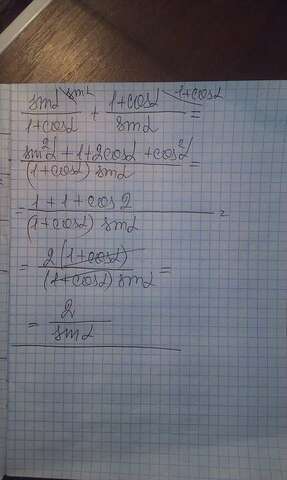 sinα\sinα / 1+cosα + 1+cosα\1+cosα / sinα =
sin²α + 1 + 2cosα + cos²α / (1+cosα) sinα =
= 1 + 1 + cos 2 / (1+cosα) sinα =
= 2 (1+cosα) / (1+cosα) sinα =
= 2 / sinα